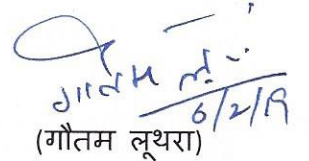 गौतम लू
6/2/19
(गौतम लूथरा)